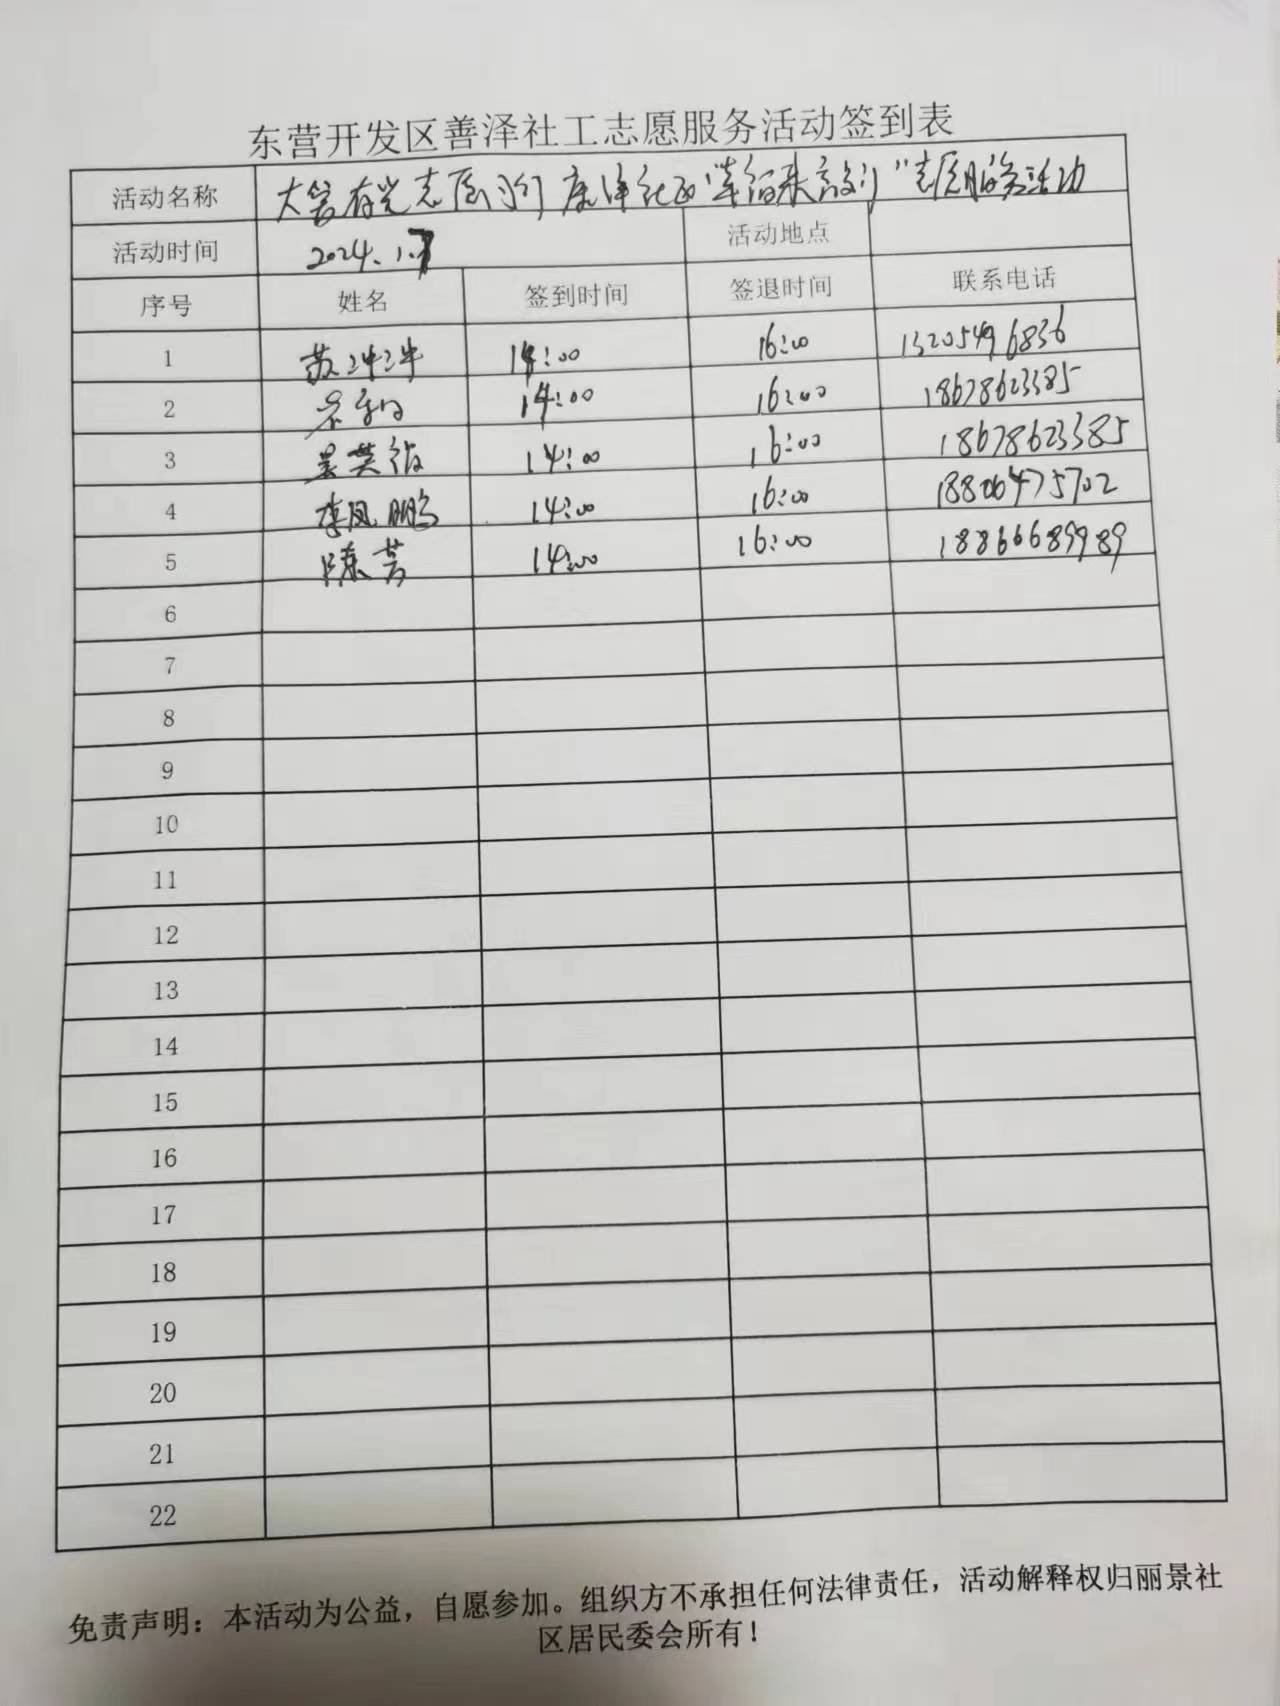 东营开发区善泽社工志愿服务活动签到表
活动名称 大 志愿 康泽社区 "志愿服务活动
活动时间 2024.1.7 活动地点
序号 姓名 签到时间 签退时间 联系电话
1 苏冲冲 14:00 16:00 13205496836
2 14:00 16:00 18678623385
3 吴英 14:00 16:00 18678623385
4 李凤鹏 14:00 16:00 18806475702
5 陈芳 14:00 16:00 18866689989
6
7
8
9
10
11
12
13
14
15
16
17
18
19
20
21
22
免责声明：本活动为公益，自愿参加。组织方不承担任何法律责任，活动解释权归丽景社
区居民委会所有！